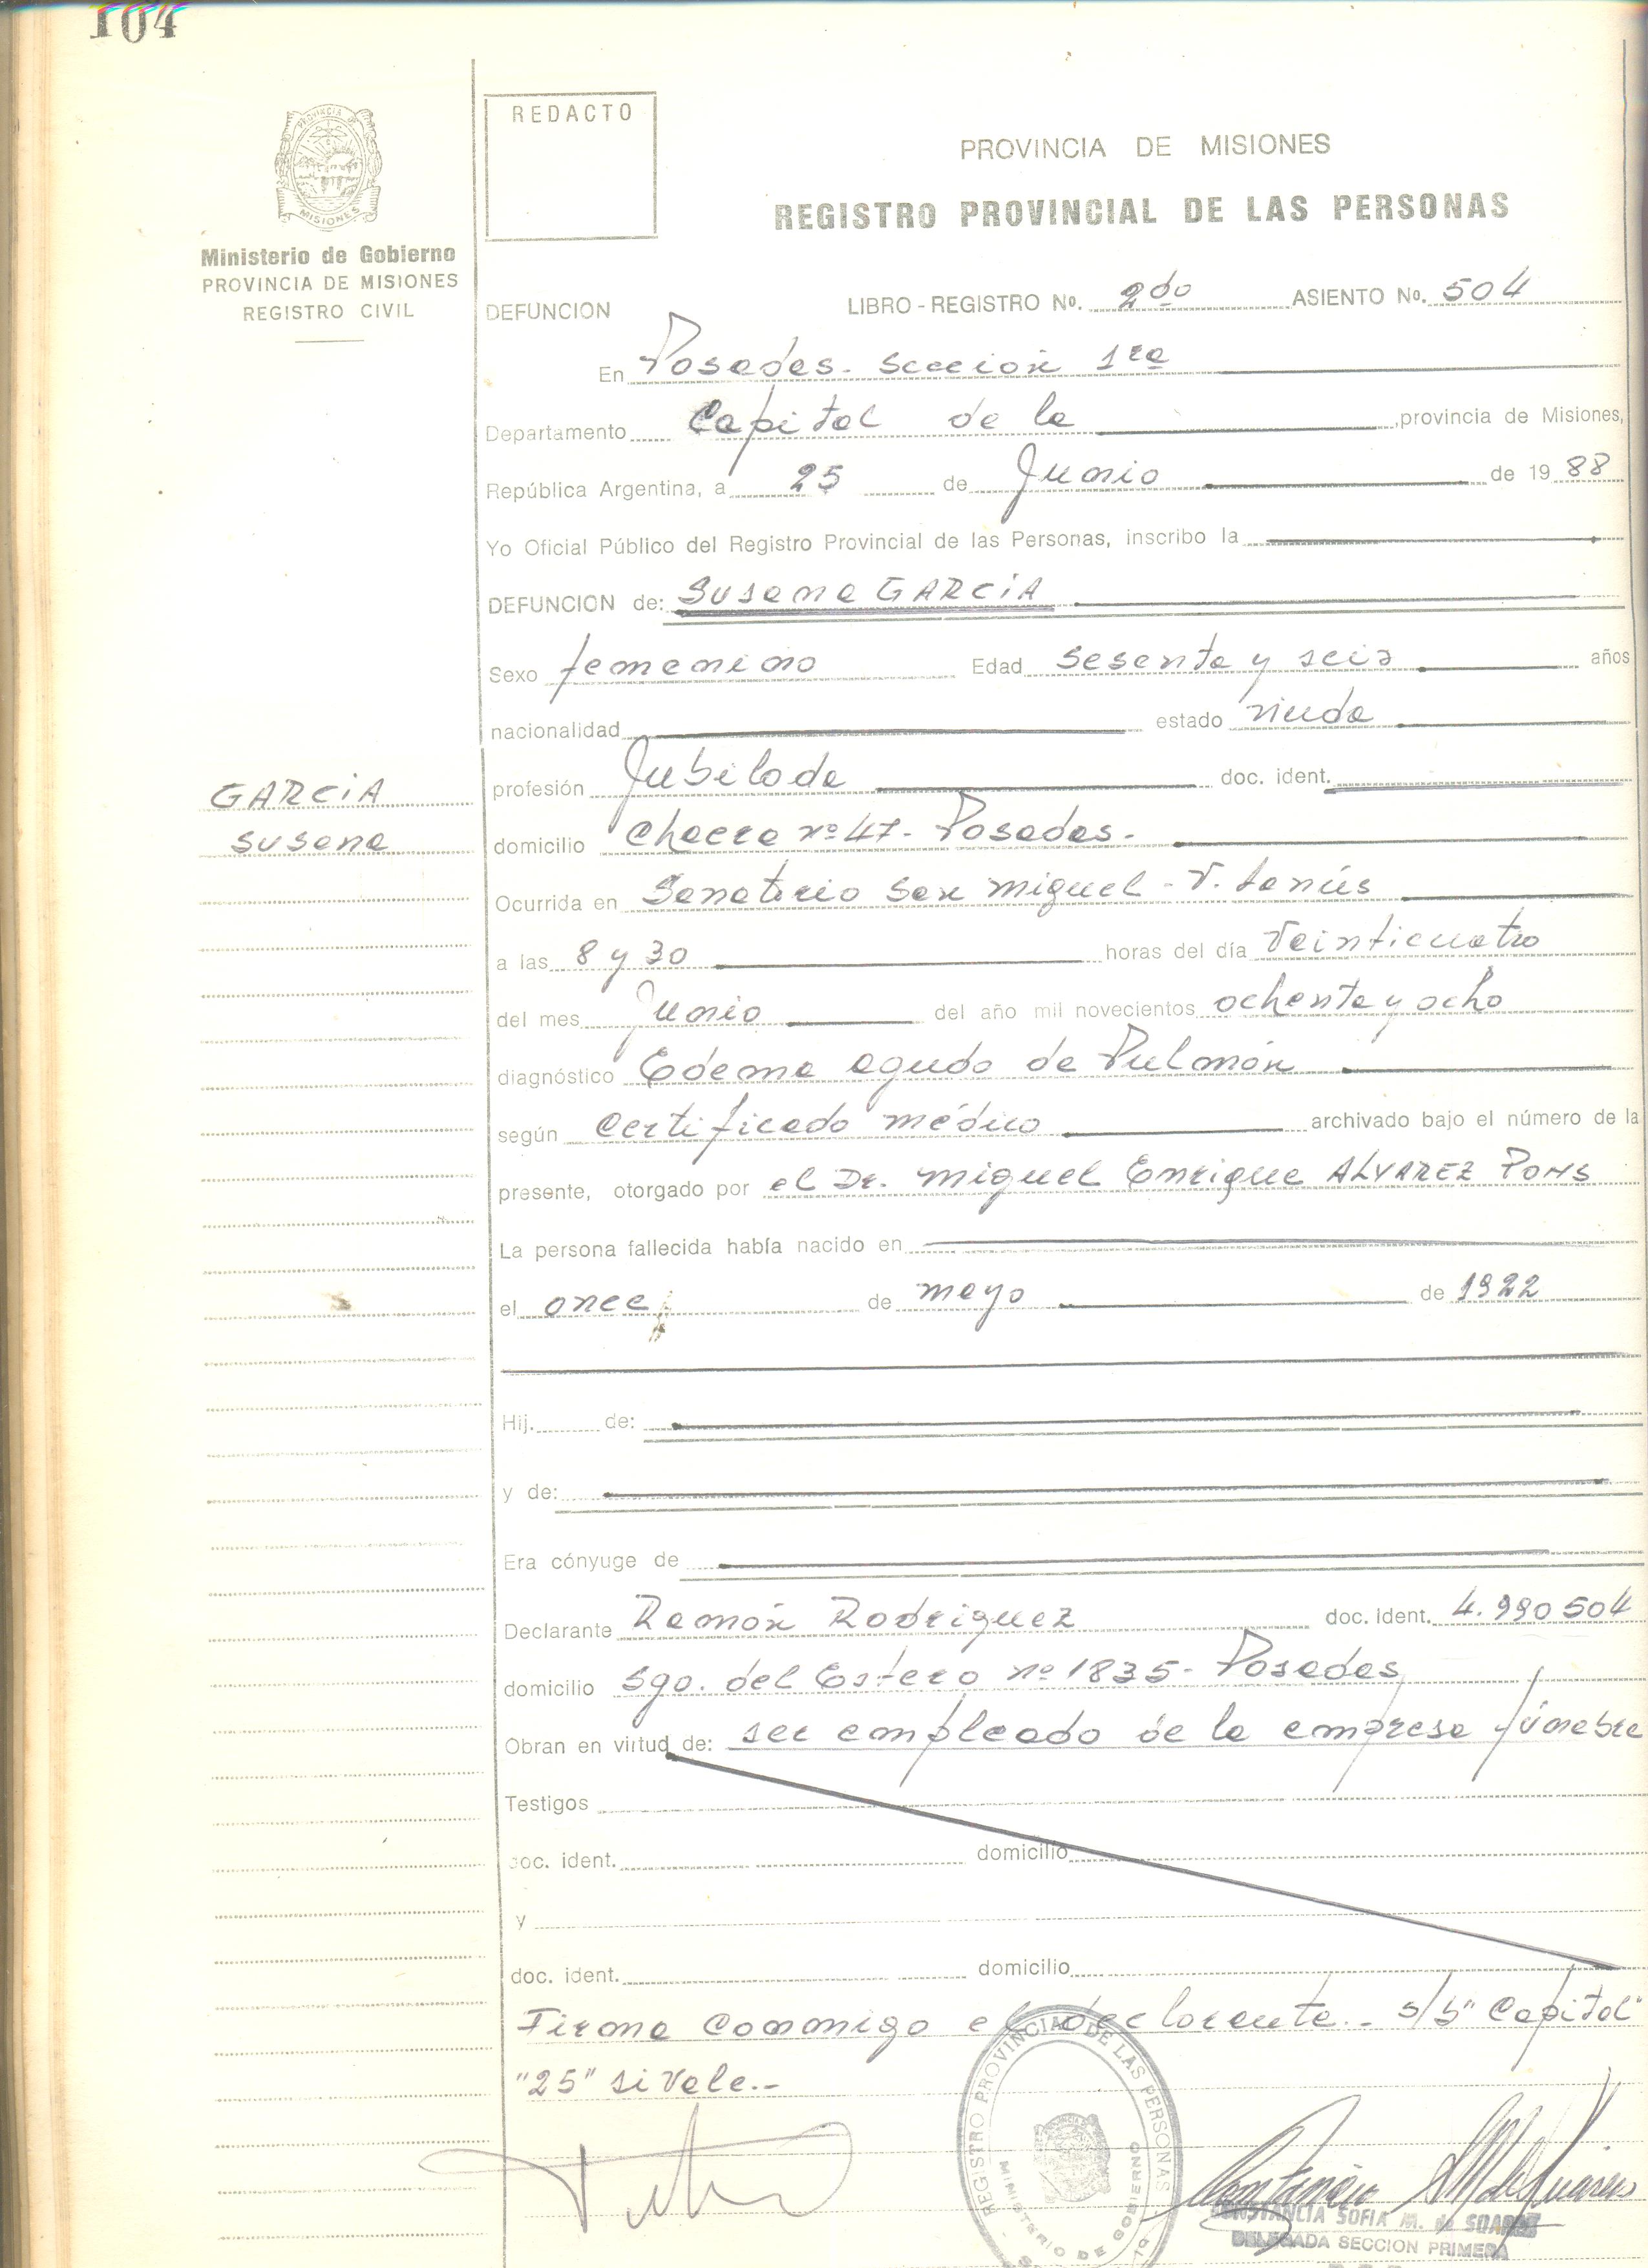 104
PROVINCIA DE
MISIONES
Ministerio de Gobierno
PROVINCIA DE MISIONES
REGISTRO CIVIL
REDACTO
PROVINCIA DE MISIONES
REGISTRO PROVINCIAL DE LAS PERSONAS
DEFUNCION LIBRO - REGISTRO No. 2do ASIENTO No. 504
En Posadas. Sección 1ra
Departamento Capital de la , provincia de Misiones,
República Argentina, a 25 de Junio de 1988
Yo Oficial Público del Registro Provincial de las Personas, inscribo la
DEFUNCION de: Susana GARCIA
Sexo femenino Edad sesenta y seis años
nacionalidad estado viuda
profesión Jubilada doc. ident.
GARCIA
Susana
domicilio Chacra nº 47- Posadas.
Ocurrida en Sanatorio San Miguel - V. Lanús
a las 8 y 30 horas del día veinticuatro
del mes Junio del año mil novecientos ochenta y ocho
diagnóstico Edema agudo de Pulmón
según certificado médico archivado bajo el número de la
presente, otorgado por el Dr. Miguel Enrique ALVAREZ PONS
La persona fallecida había nacido en
el once de mayo de 1922
Hij. de:
y de:
Era cónyuge de
Declarante Ramón Rodriguez doc. ident. 4.990504
domicilio Sgo. del Estero nº 1835- Posadas
Obran en virtud de: ser empleado de la empresa fúnebre
Testigos
doc. ident. domicilio
y
doc. ident. domicilio
Firma conmigo el declarante.- S/b "Capital"
"25" si vale.-
REGISTRO PROVINCIAL DE LAS PERSONAS
MINISTERIO DE GOBIERNO
CONSTANCIA SOFIA M. de SOAREZ
DELEGADA SECCION PRIMERA